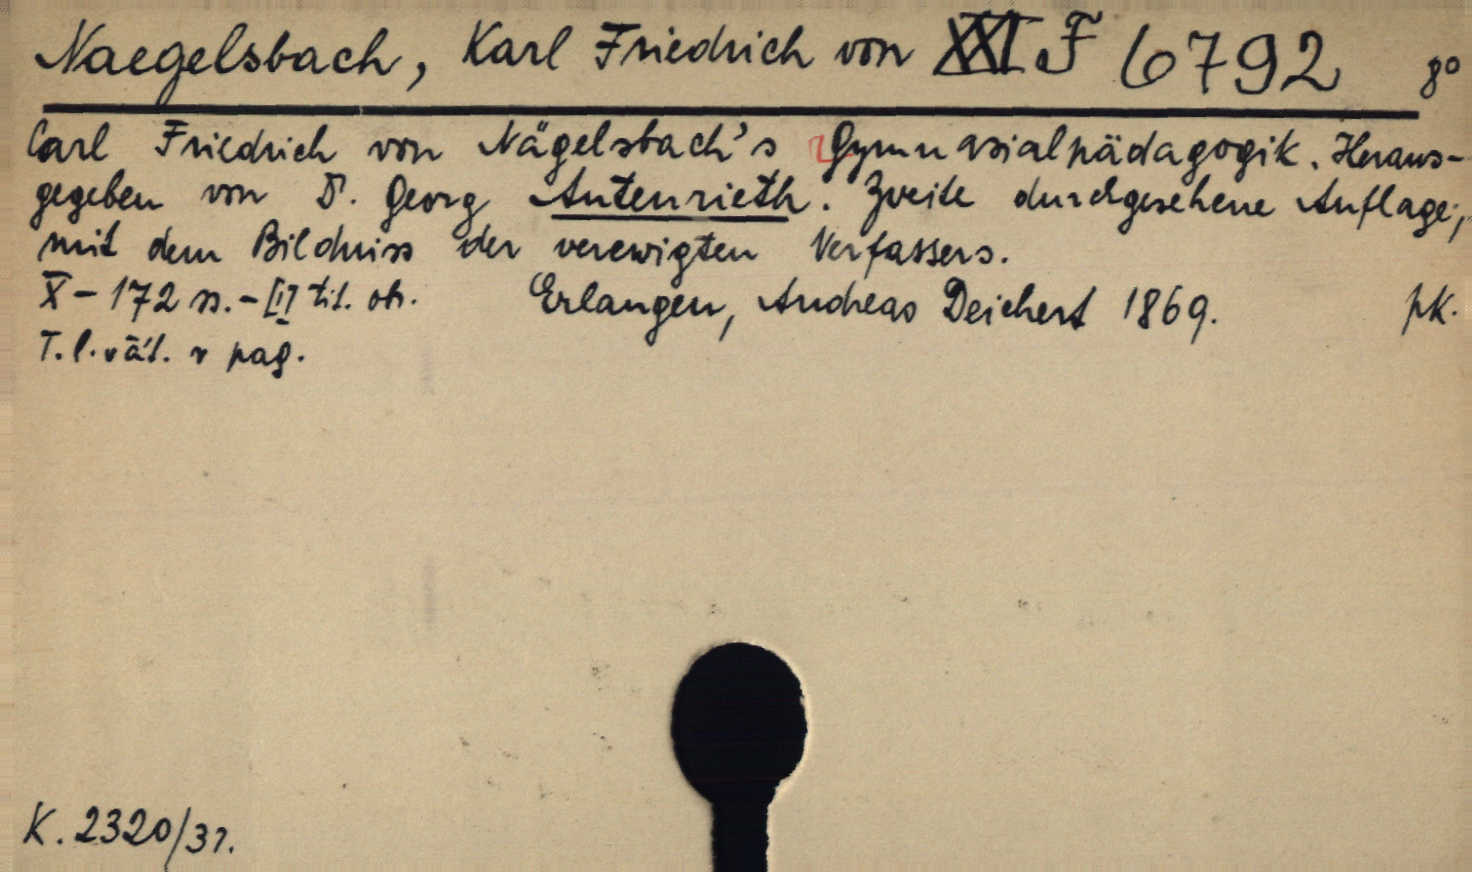 Naegelsbach, Karl Friedrich von XXI F 6792 8°
Carl Friedrich von Nägelsbach's Gymnasialpädagogik. Heraus-
gegeben von D. Georg Autenrieth. Zweite durchgesehene Auflage,
mit dem Bildniss der verewigten Verfassers.
X - 172 s. - [I] tit. obr. Erlangen, Andreas Deichert 1869. pk.
T. l. váz. v pag.
K. 2320/31.